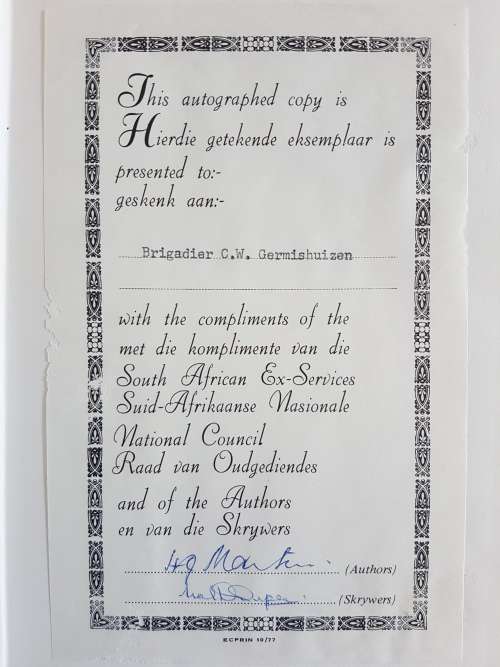 This autographed copy is
Hierdie getekende eksemplaar is
presented to:-
geskenk aan:-
Brigadier C.W. Germishuizen
with the compliments of the
met die komplimente van die
South African Ex-Services
Suid-Afrikaanse Nasionale
National Council
Raad van Oudgediendes
and of the Authors
en van die Skrywers
HJ Martin (Authors)
(Skrywers)
ECPRIN 10/77